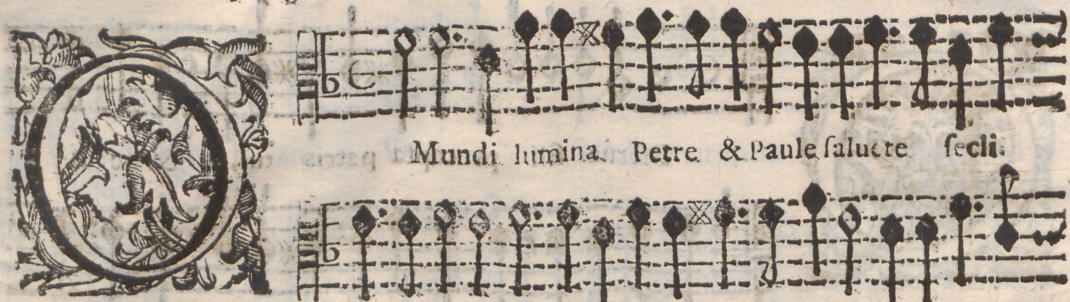 O Mundi lumina. Petre & Paule saluete secli.